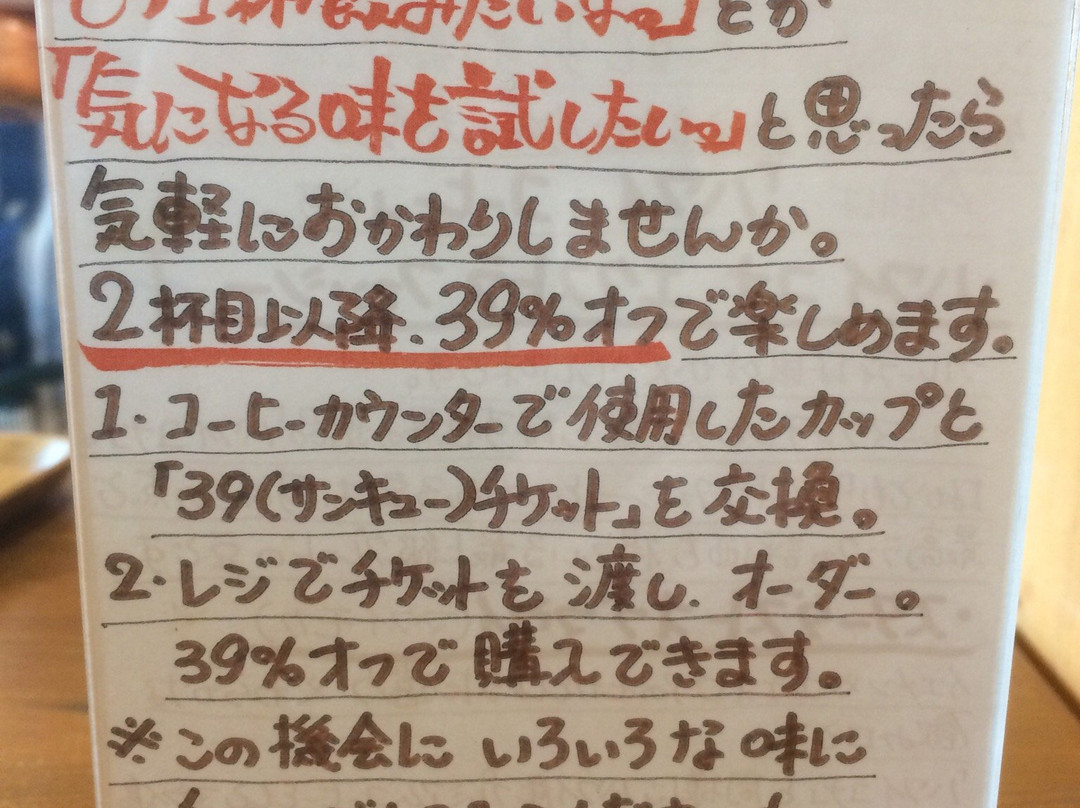 もう1杯飲みたいな。」とか
「気になる味を試したい。」と思ったら
気軽におかわりしませんか。
2杯目以降、39%オフで楽しめます。
1. コーヒーカウンターで使用したカップと
「39(サンキュー)チケット」を交換。
2. レジでチケットを渡し、オーダー。
39%オフで購入できます。
※この機会にいろいろな味に